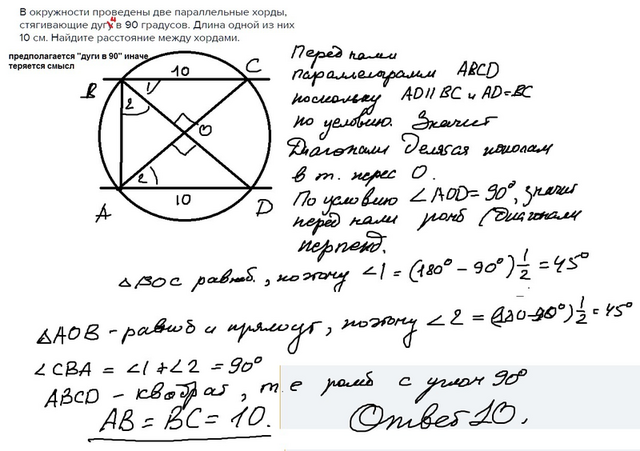 В окружности проведены две параллельные хорды,
стягивающие дугу и в 90 градусов. Длина одной из них
10 см. Найдите расстояние между хордами.
предполагается "дуги в 90" иначе
теряется смысл
10
B
C
1
2
O
2
A
10
D
Перед нами
параллелограмм ABCD
поскольку AD||BC и AD=BC
по условию. Значит
Диагонали делятся пополам
в т. перес O.
По условию ∠AOD=90°, значит
перед нами ромб (диагонали
перпенд.
△BOC равноб., поэтому ∠1 = (180° - 90°) 1/2 = 45°
△AOB - равноб и прямоуг, поэтому ∠2 = (180-90°) 1/2 = 45°
∠CBA = ∠1 + ∠2 = 90°
ABCD - квадрат, т.е ромб с углом 90°
AB = BC = 10. Ответ 10.